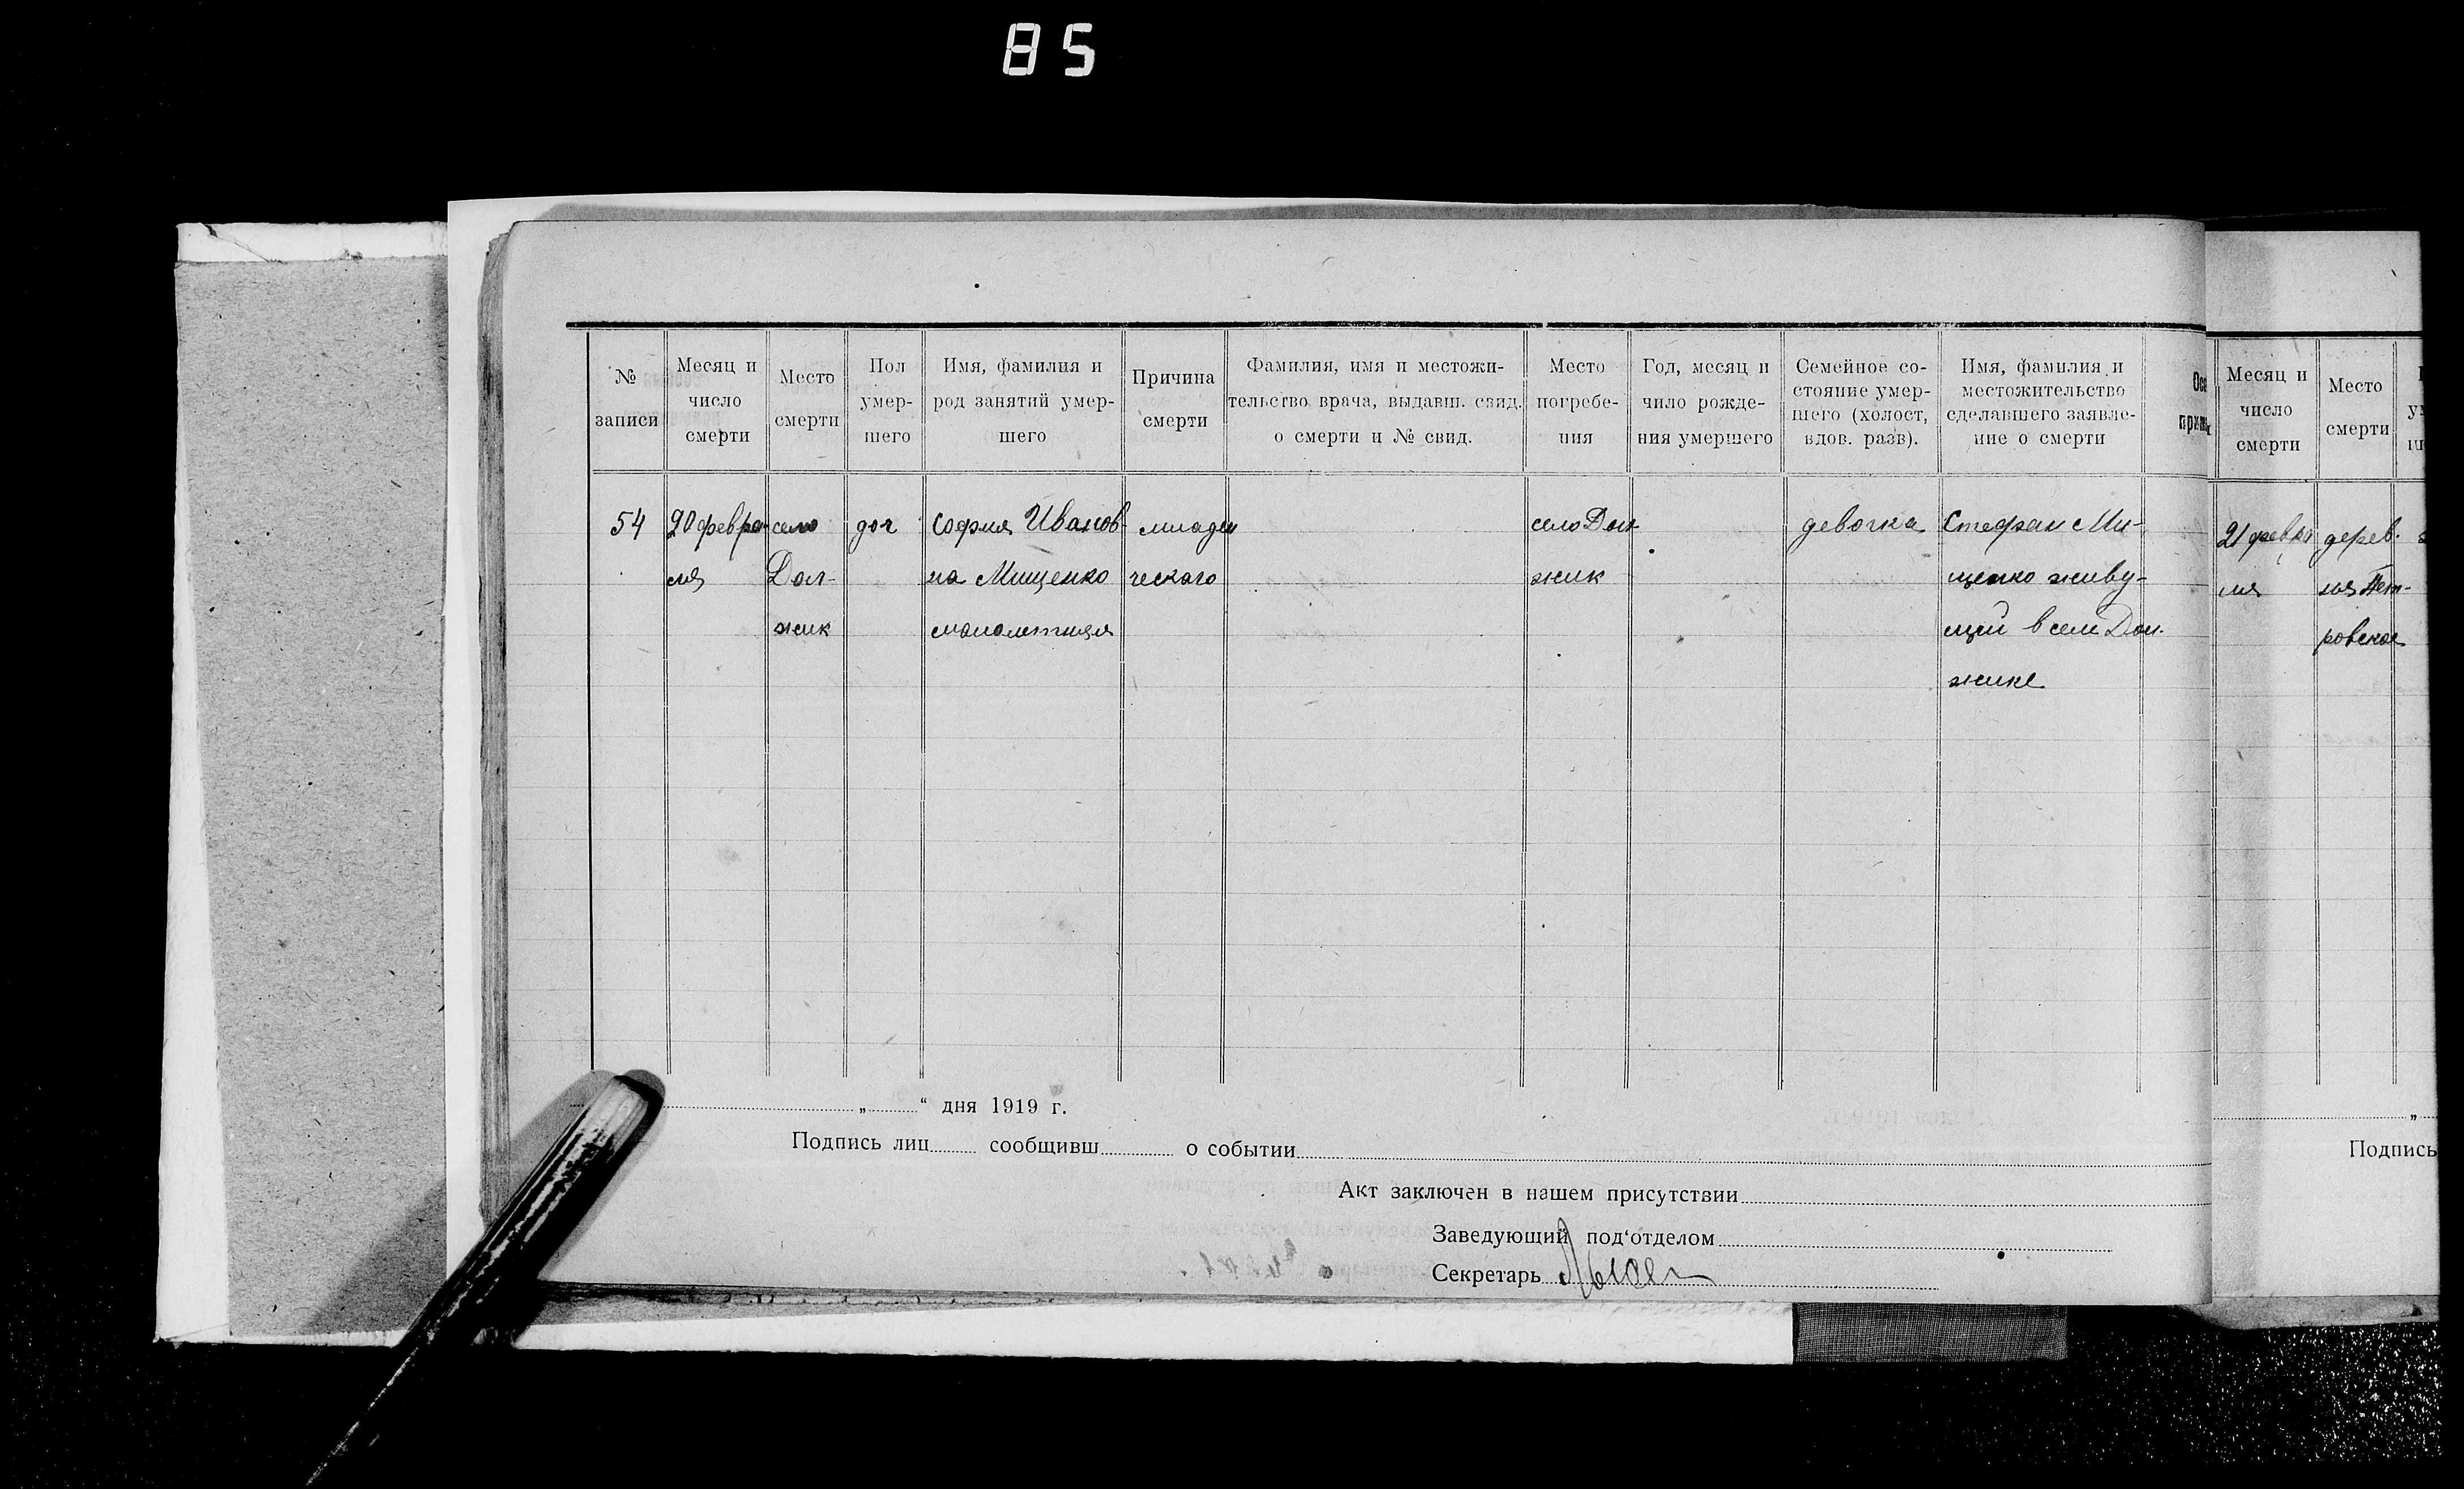 85
№ записи
Месяц и число смерти
Место смерти
Пол умер-шего
Имя, фамилия и род занятий умер-шего
Причина смерти
Фамилия, имя и местожи-тельство врача, выдавш. свид. о смерти и № свид.
Место погребе-ния
Год, месяц и чило рожде-ния умершего
Семейное со-стояние умер-шего (холост, вдов. разв).
Имя, фамилия и местожительство сделавшего заявле-ние о смерти
Месяц и число смерти
Место смерти
54
20 февра-
ля
село
Дол-
жик
доч
София Иванов-
на Мищенко
малолетняя
младен
ческаго
село Дол-
жик
девочка
Стефан Ми-
щенко живу-
щий в селе Дол-
жике
21 февра
ля
дерев.
ня Пет-
ровское
„ “ дня 1919 г.
Подпись лиц сообщивш о событии
Акт заключен в нашем присутствии
Заведующий под‘отделом
Секретарь
„
Подпись